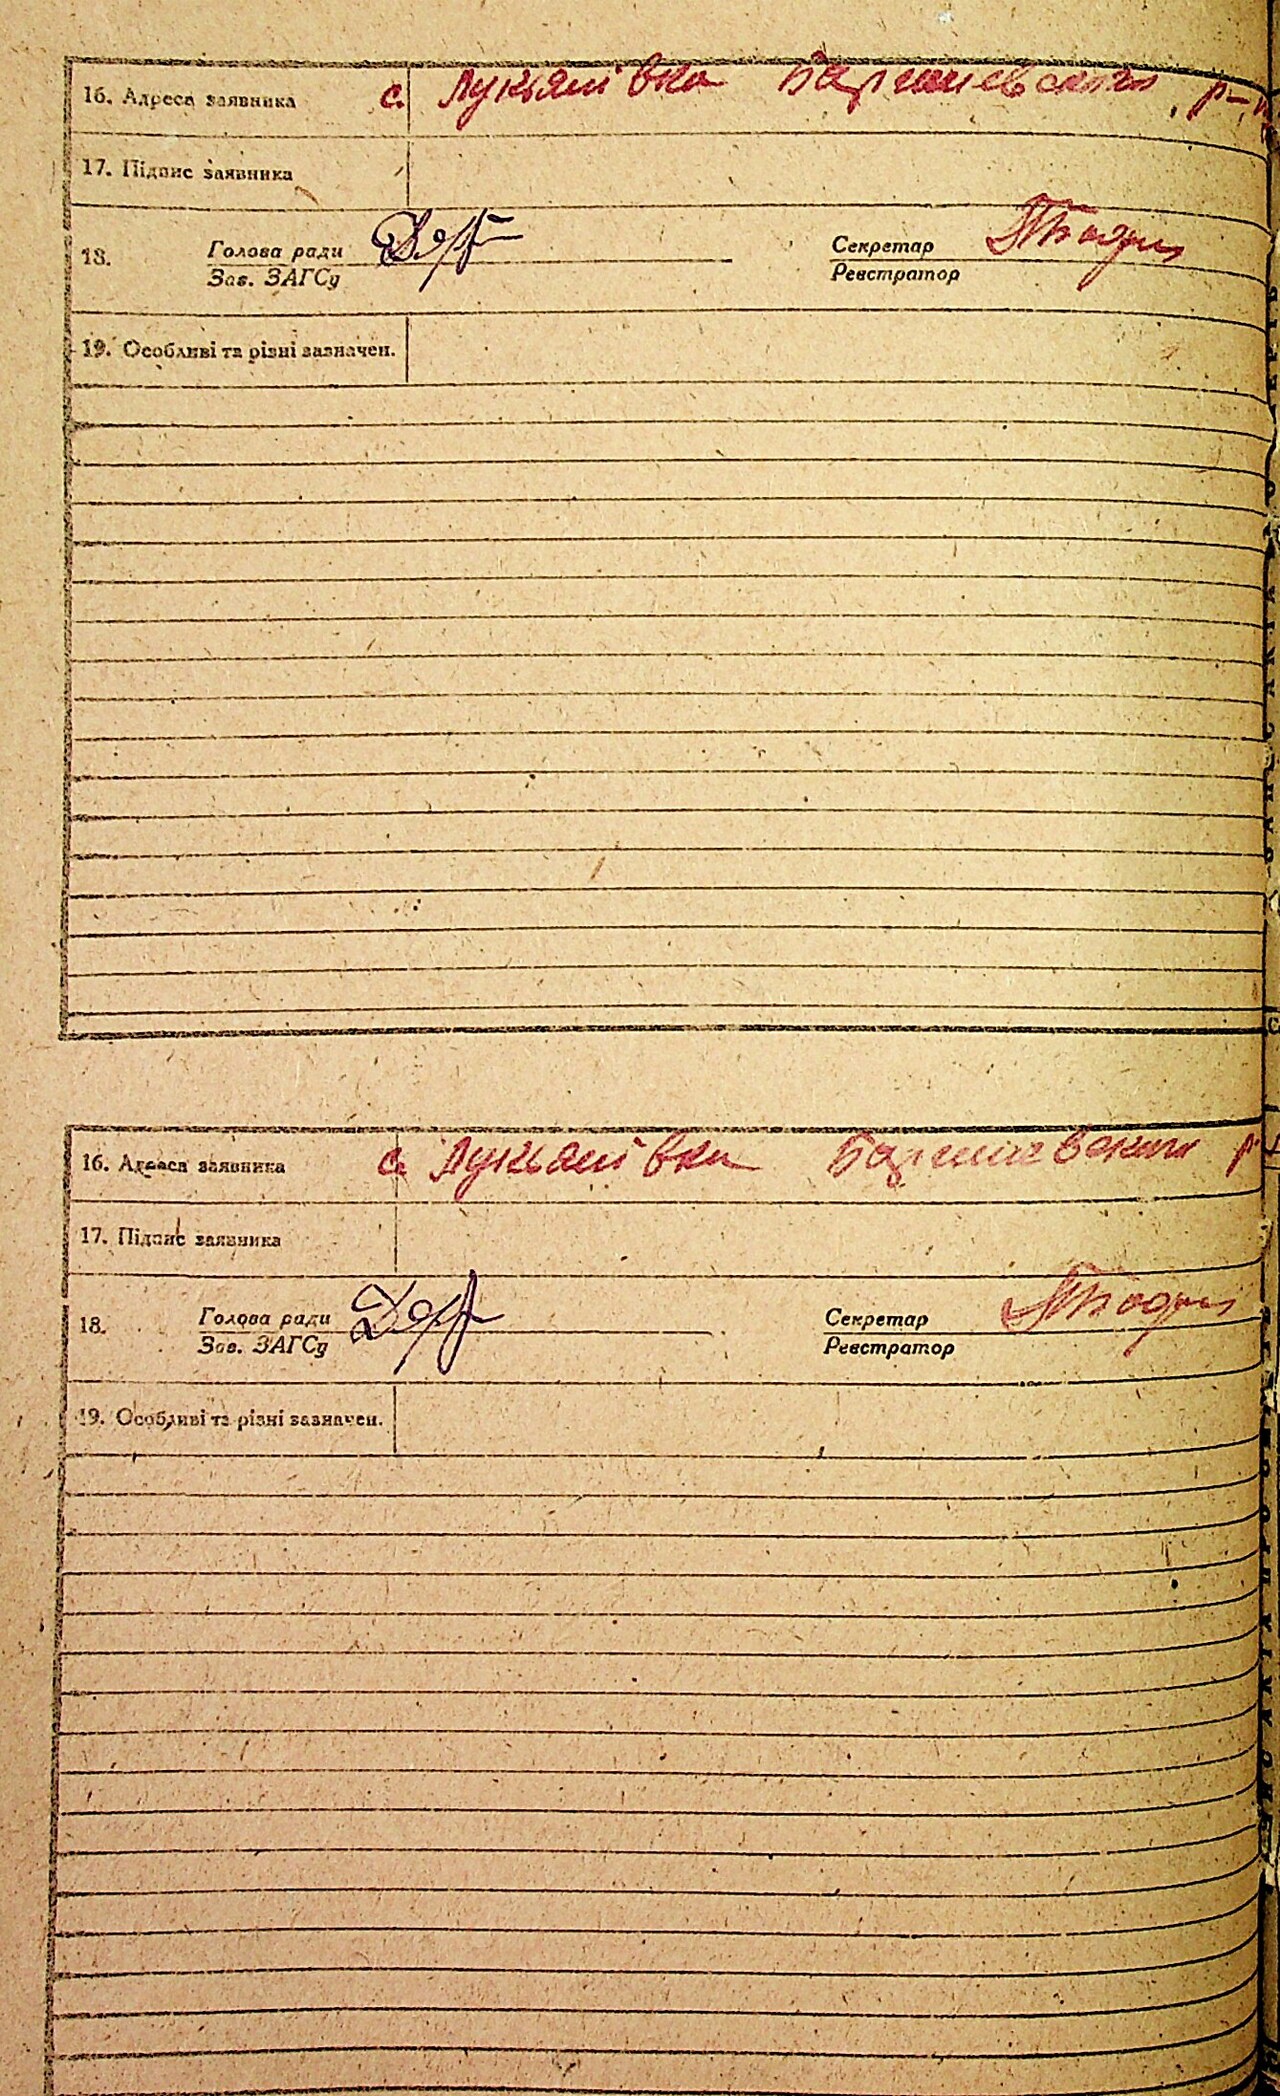 16. Адреса заявника с. Лукьянівка Баришевского р-н
17. Підпис заявника
18. Голова ради Секретар
Зав. ЗАГСу Реєстратор
19. Особливі та різні зазначен.
16. Адреса заявника с. Лукьянівка Баришевского р
17. Підпис заявника
18. Голова ради Секретар
Зав. ЗАГСу Реєстратор
19. Особливі та різні зазначен.